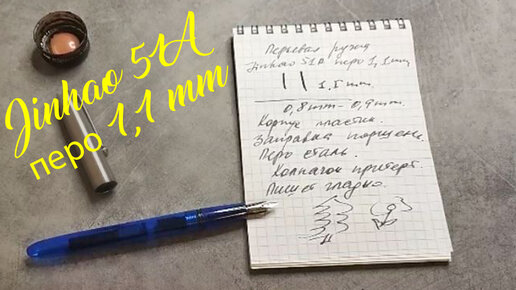 Jinhao 51A
перо 1,1 mm
Перьевая ручка
Jinhao 51A перо 1,1mm
1,1mm
0,8mm-0,9mm.
Корпус пластик.
Заправка поршнем.
Перо сталь.
Колпачок притерт.
Пишет гладко.